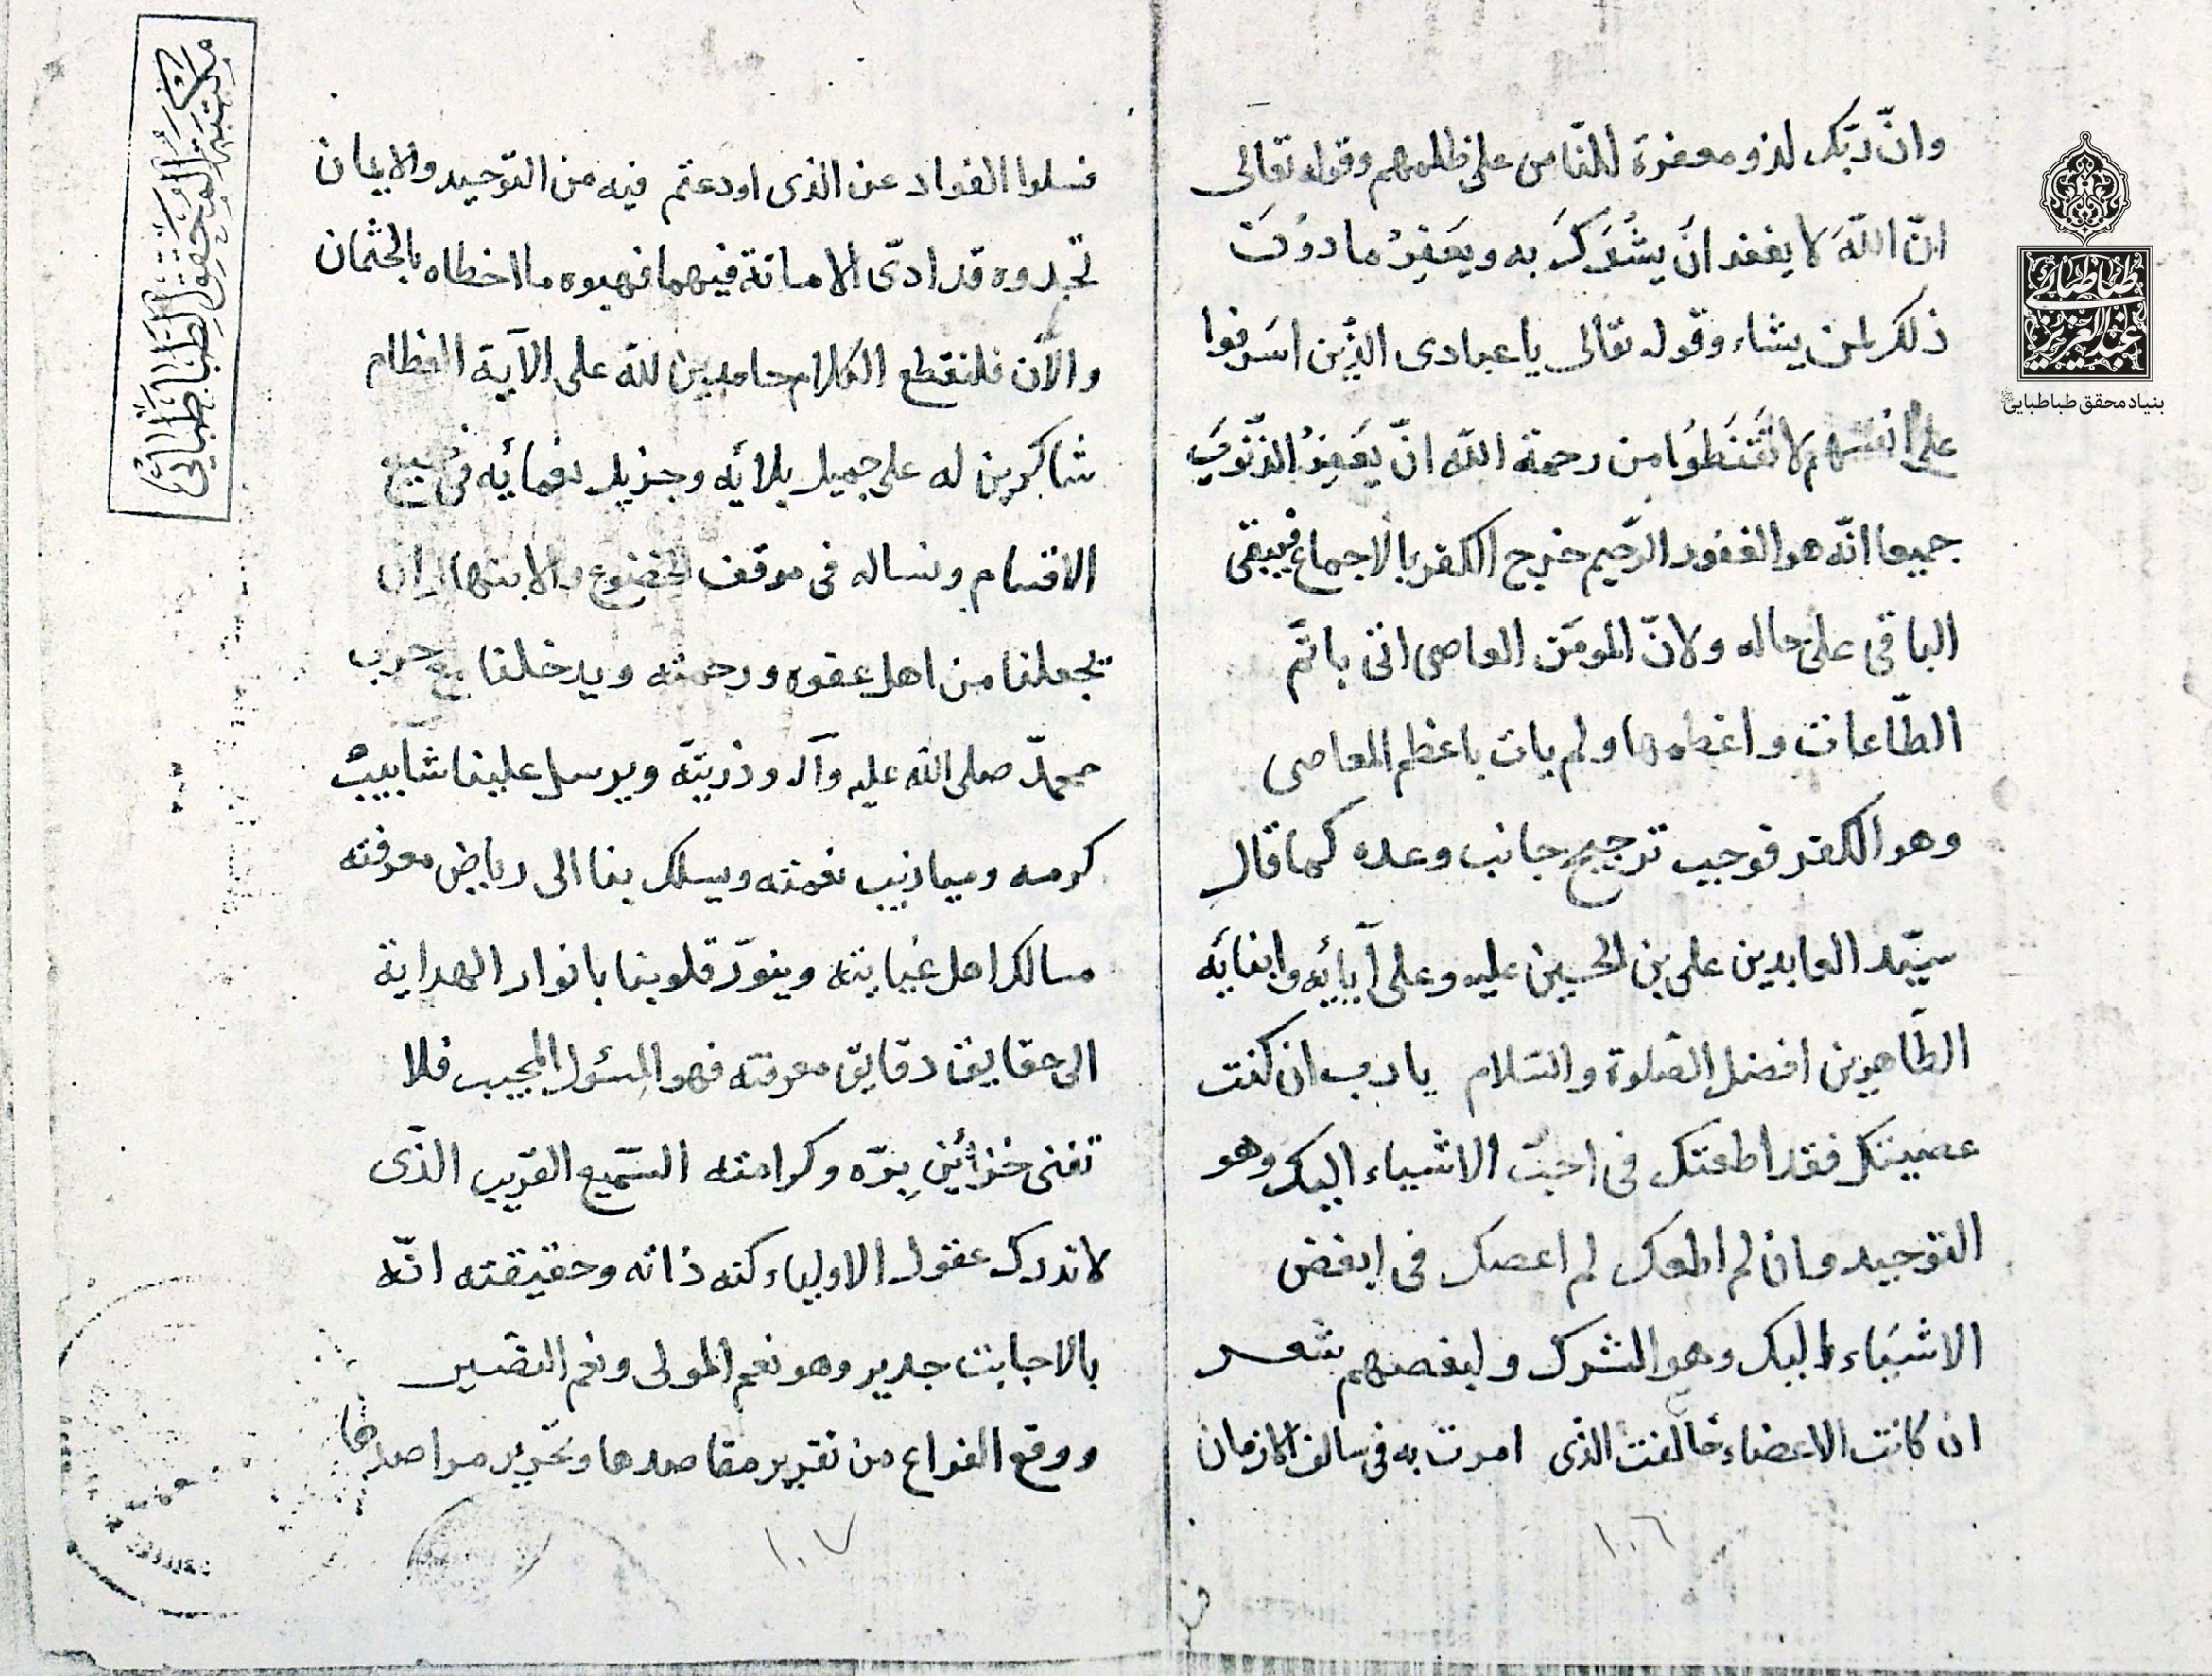 وانّ ربّك لذو مغفرة للنّاس على ظلمهم وقوله تعالى
انّ اللّه لا يغفر ان يشرك به ويغفر ما دون
ذلك لمن يشاء وقوله تعالى يا عبادى الذين اسرفوا
على انفسهم لا تقنطوا من رحمة اللّه انّ يغفر الذّنوب
جميعا انّه هو الغفور الرّحيم خرج الكفر بالاجماع فيبقى
الباقى على حاله ولانّ المومن العاصى اتى باتمّ
الطّاعات واعظمها ولم يات باعظم المعاصى
وهو الكفر فوجب ترجيح جانب وعده كما قال
سيّد العابدين على بن الحسين عليه وعلى آبائه وابنائه
الطّاهرين افضل الصّلوة والسّلام يا رب ان كنت
عصيتك فقد اطعتك فى احبّ الاشياء اليك وهو
التوحيد وان لم اطعك لم اعصك فى ابغض
الاشياء اليك وهو الشرك ولبعضهم شعر
ان كانت الاعضاء خالفت الذى امرت به فى سالف الازمان
١٠٦
فسلوا الفواد عن الذى اودعتم فيه من التوحيد والايمان
تجدوه قد ادّى الامانة فيهما فهبوه ما اخطاه بالجثمان
والآن فلنقطع الكلام حامدين للّه على الآية العظام
شاكرين له على جميل بلائه وجزيل نعمائه فى جميع
الاقسام ونساله فى موقف الخضوع والابتهال ان
يجعلنا من اهل عفوه ورحمته ويدخلنا مع حزب
محمدّ صلى اللّه عليه وآله وذريّته ويرسل علينا شآبيب
كرمه وميازيب نعمته ويسلك بنا الى رياض معرفته
مسالك اهل عنايته وينوّر قلوبنا بانوار الهداية
الى حقايق دقايق معرفته فهو المسئول المجيب فلا
تفنى خزائن برّه وكرامته السّميع القريب الذّى
لا تدرك عقول الاولياء كنه ذاته وحقيقته انّه
بالاجابت جدير وهو نعم المولى ونعم النصير
ووقع الفراغ من تقرير مقاصدها وتحرير مراصدها
١٠٧
مكتبة المحقق الطباطبائي
طباطبائى
عبدالعزيز
بنیاد محقق طباطبایی